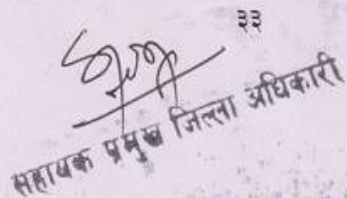 ३३
सहायक प्रमुख जिल्ला अधिकारी